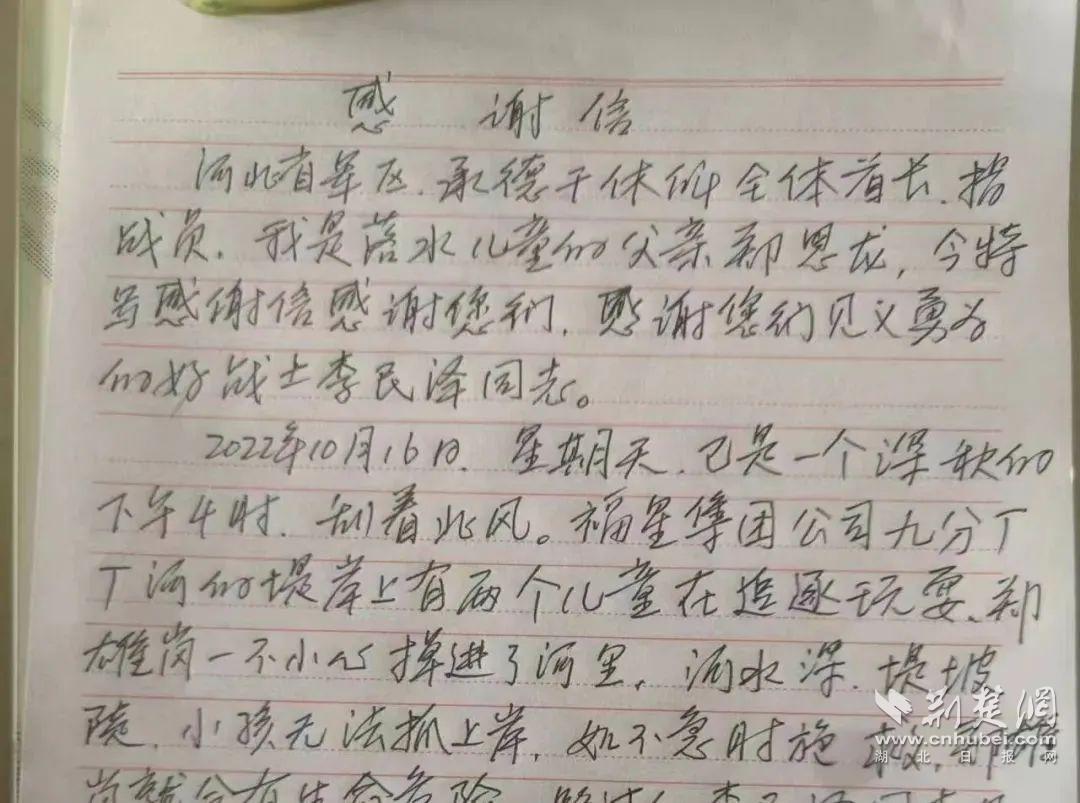 感 谢 信
河北省军区、承德干休所全体首长、指
战员。我是落水儿童的父亲郑恩龙,今特
写感谢信感谢您们,感谢您们见义勇为
的好战士李民泽同志。
2022年10月16日,星期天,已是一个深秋的
下午4时,刮着北风。福星集团公司九分厂
丁河的堤岸上有两个儿童在追逐玩耍、郑
雄岗一不小心掉进了河里,河水深、堤坡
陡,小孩无法抓上岸,如不急时施救,郑雄
岗就会有生命危险,路过
荆楚网
www.cnhubei.com
湖北日报网